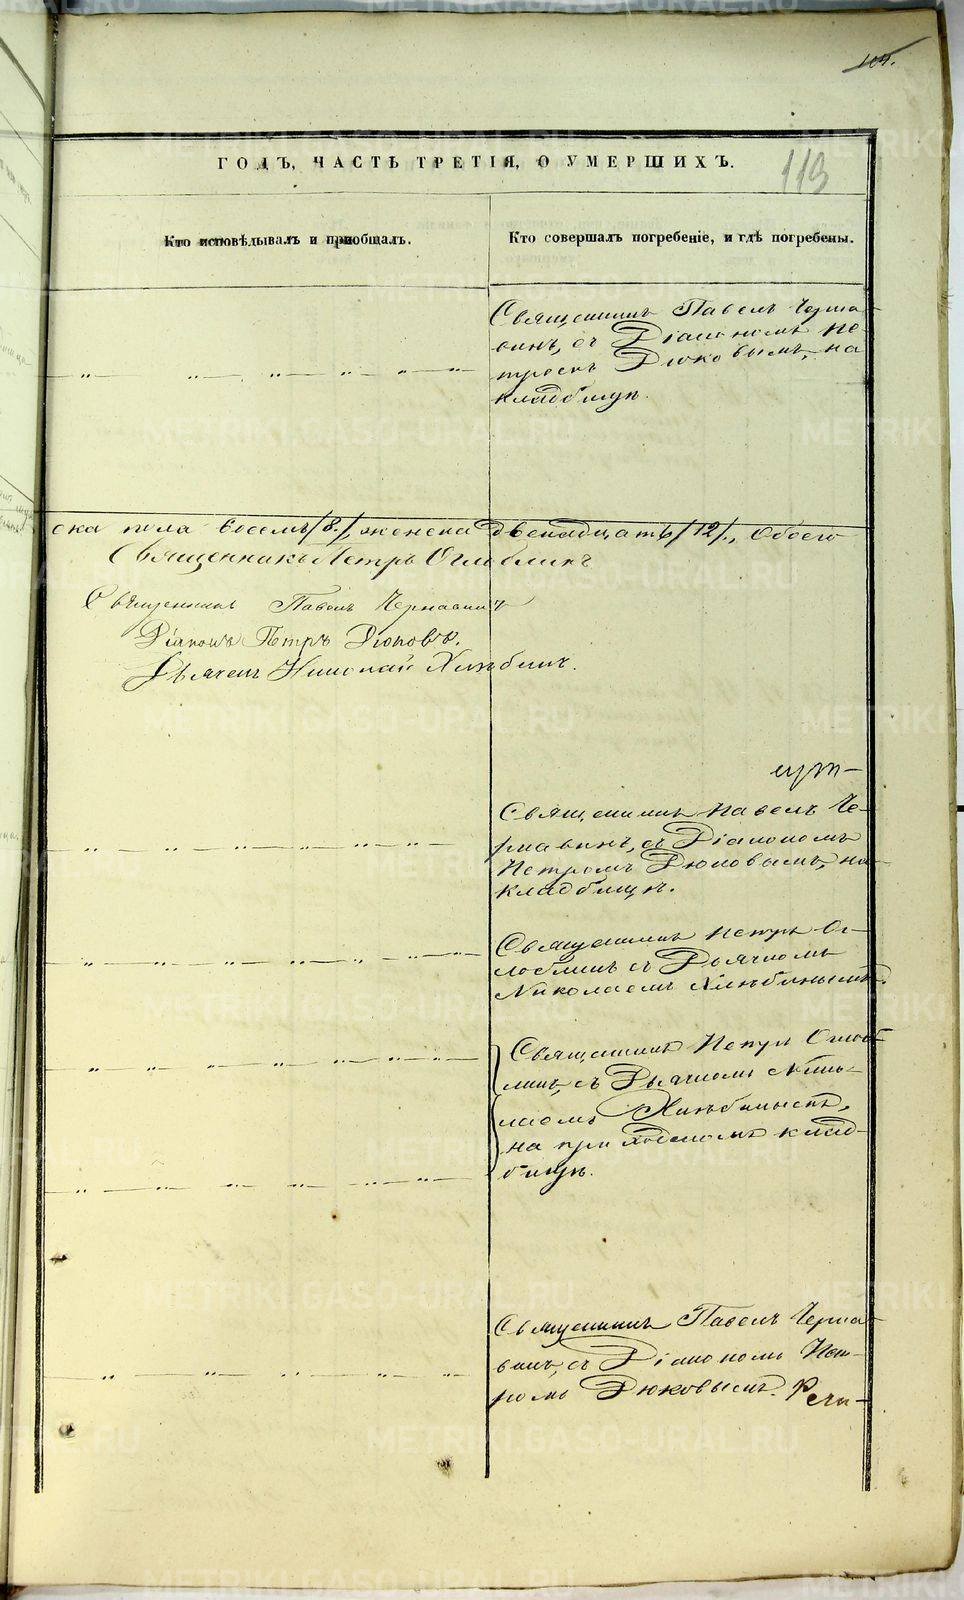 104.
ГОДЪ, ЧАСТЬ ТРЕТІЯ, О УМЕРШИХЪ.
119
Кто исповѣдывалъ и пріобщалъ.
Кто совершалъ погребеніе, и гдѣ погребены.
Священникъ Павелъ Черна-
винъ, съ Діакономъ Пе
тромъ Дюковымъ, на
кладбищѣ.
ска пола восемь /8/, женска двенадцать /12/., Обоего
Священникъ Петръ Оглоблинъ
Священникъ Павелъ Чернавинъ
Діаконъ Петръ Дюковъ.
Дьячекъ Николай Хлѣбинъ.
Священникъ Павелъ Че-
рнавинъ, съ Діакономъ
Петромъ Дюковымъ, на
кладбищѣ.
Священникъ Петръ Ог-
лоблинъ съ Дьячкомъ
Николаемъ Хлѣбинымъ.
Священникъ Петръ Оглоб-
линъ, съ Дьячкомъ Нико-
лаемъ Хлѣбинымъ,
на приходскомъ клад-
бищѣ.
Священникъ Павелъ Черна-
винъ, съ Діакономъ Пет-
ромъ Дюковымъ.
METRIKI.GASO-URAL.RU